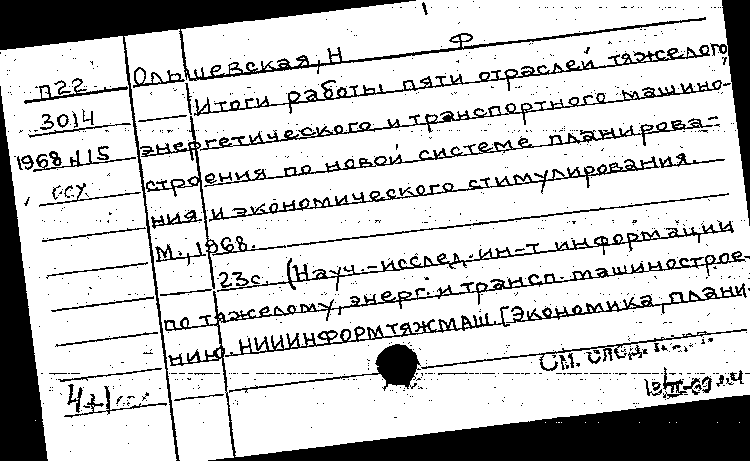 Ольшевская, Н Ф
п22
Итоги работы пяти отраслей тяжелого,
3014
энергетического и транспортного машино-
1968 н15
строения по новой системе планирова-
осх
ния и экономического стимулирования.
М., 1968.
23с. (Науч.-исслед. ин-т информации
по тяжелому, энерг. и трансп. машинострое-
нию. НИИИНФОРМТЯЖМАШ. [Экономика, плани-
см. след.
4+1